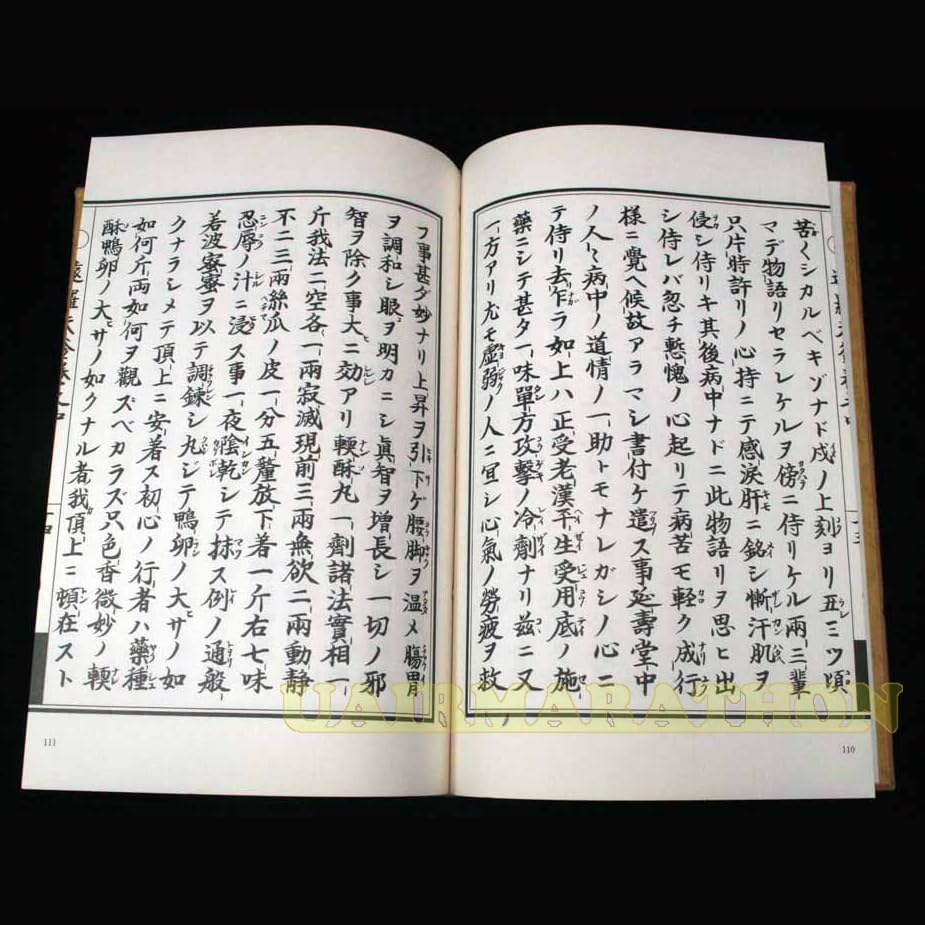 苦々シカルベキゾナド戌ノ上刻ヨリ丑三ツ頃
マデ物語リセラレケルヲ傍ニ侍リケル兩三輩
只片時許リノ心持ニテ感涙肝ニ銘シ慚汗肌ヲ
侵シ侍リキ其後病中ナドニ此物語リヲ思ヒ出
シ侍レバ忽チ慙愧ノ心起リテ病苦モ輕ク成行
樣ニ覺ヘ候故アラマシ書付ケ遣ス事延壽堂中
ノ人々病中ノ道情ノ一助トモナレガシノ心ニ
テ侍リ去乍ラ如上ハ正受老漢平生受用底ノ施
藥ニシテ甚タ一味單方攻擊ノ冷劑ナリ茲ニ又
一方アリ尤モ虛弱ノ人ニ宜シ心氣ノ勞疲ヲ救
フ事甚タ妙ナリ上昇ヲ引下ゲ腰脚ヲ温メ腸胃
ヲ調和シ眼ヲ明カニシ眞智ヲ增長シ一切ノ邪
智ヲ除ク事大ニ効アリ輭酥丸一劑諸法實相一
斤我法二空各一兩寂滅現前三兩無欲二兩動静
不二三兩絲瓜ノ皮一分五釐放下着一斤右七味
忍辱ノ汁ニ浸ス事一夜陰乾シテ抹ス例ノ通般
若波蜜ヲ以テ調鍊シ丸ジテ鴨卵ノ大サノ如
クナラシメテ頂上ニ安着ス初心ノ行者ハ藥種
如何斤両如何ヲ觀ズベカラズ只色香微妙ノ輭
酥鴨卵ノ大サノ如クナル者我頂上ニ頓在スト
遠羅天釜卷之中
十四
十三
111
110
UAIRMARATHON